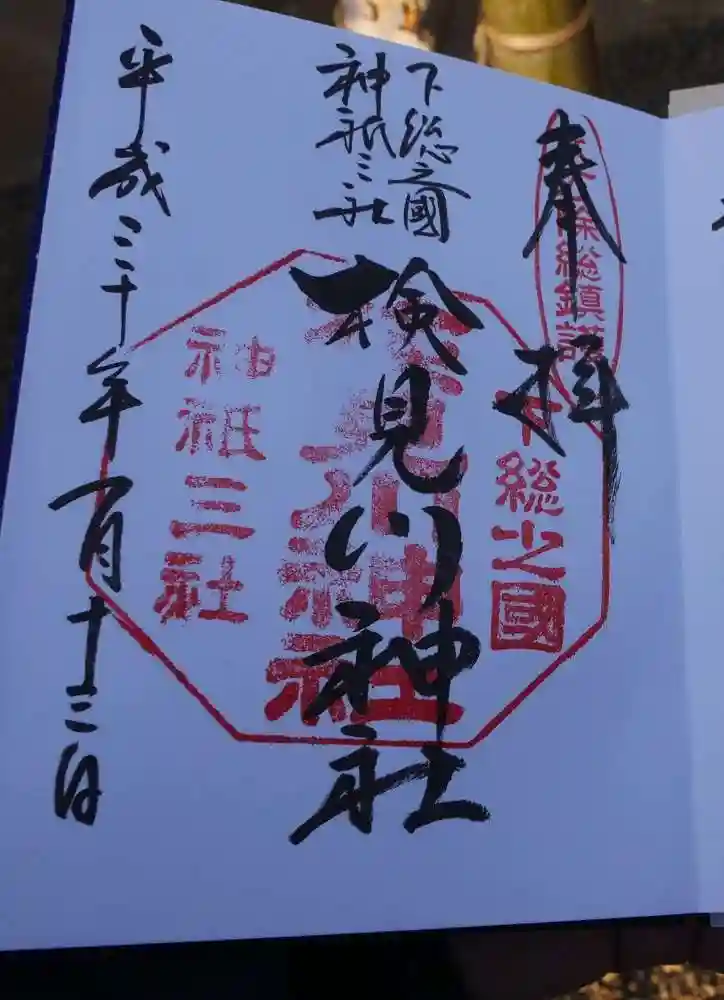 奉拝
下総之國
神祇三社
検見川神社
平成三十年一月十三日
総鎮護
下総之國
検見川神社
神祇三社